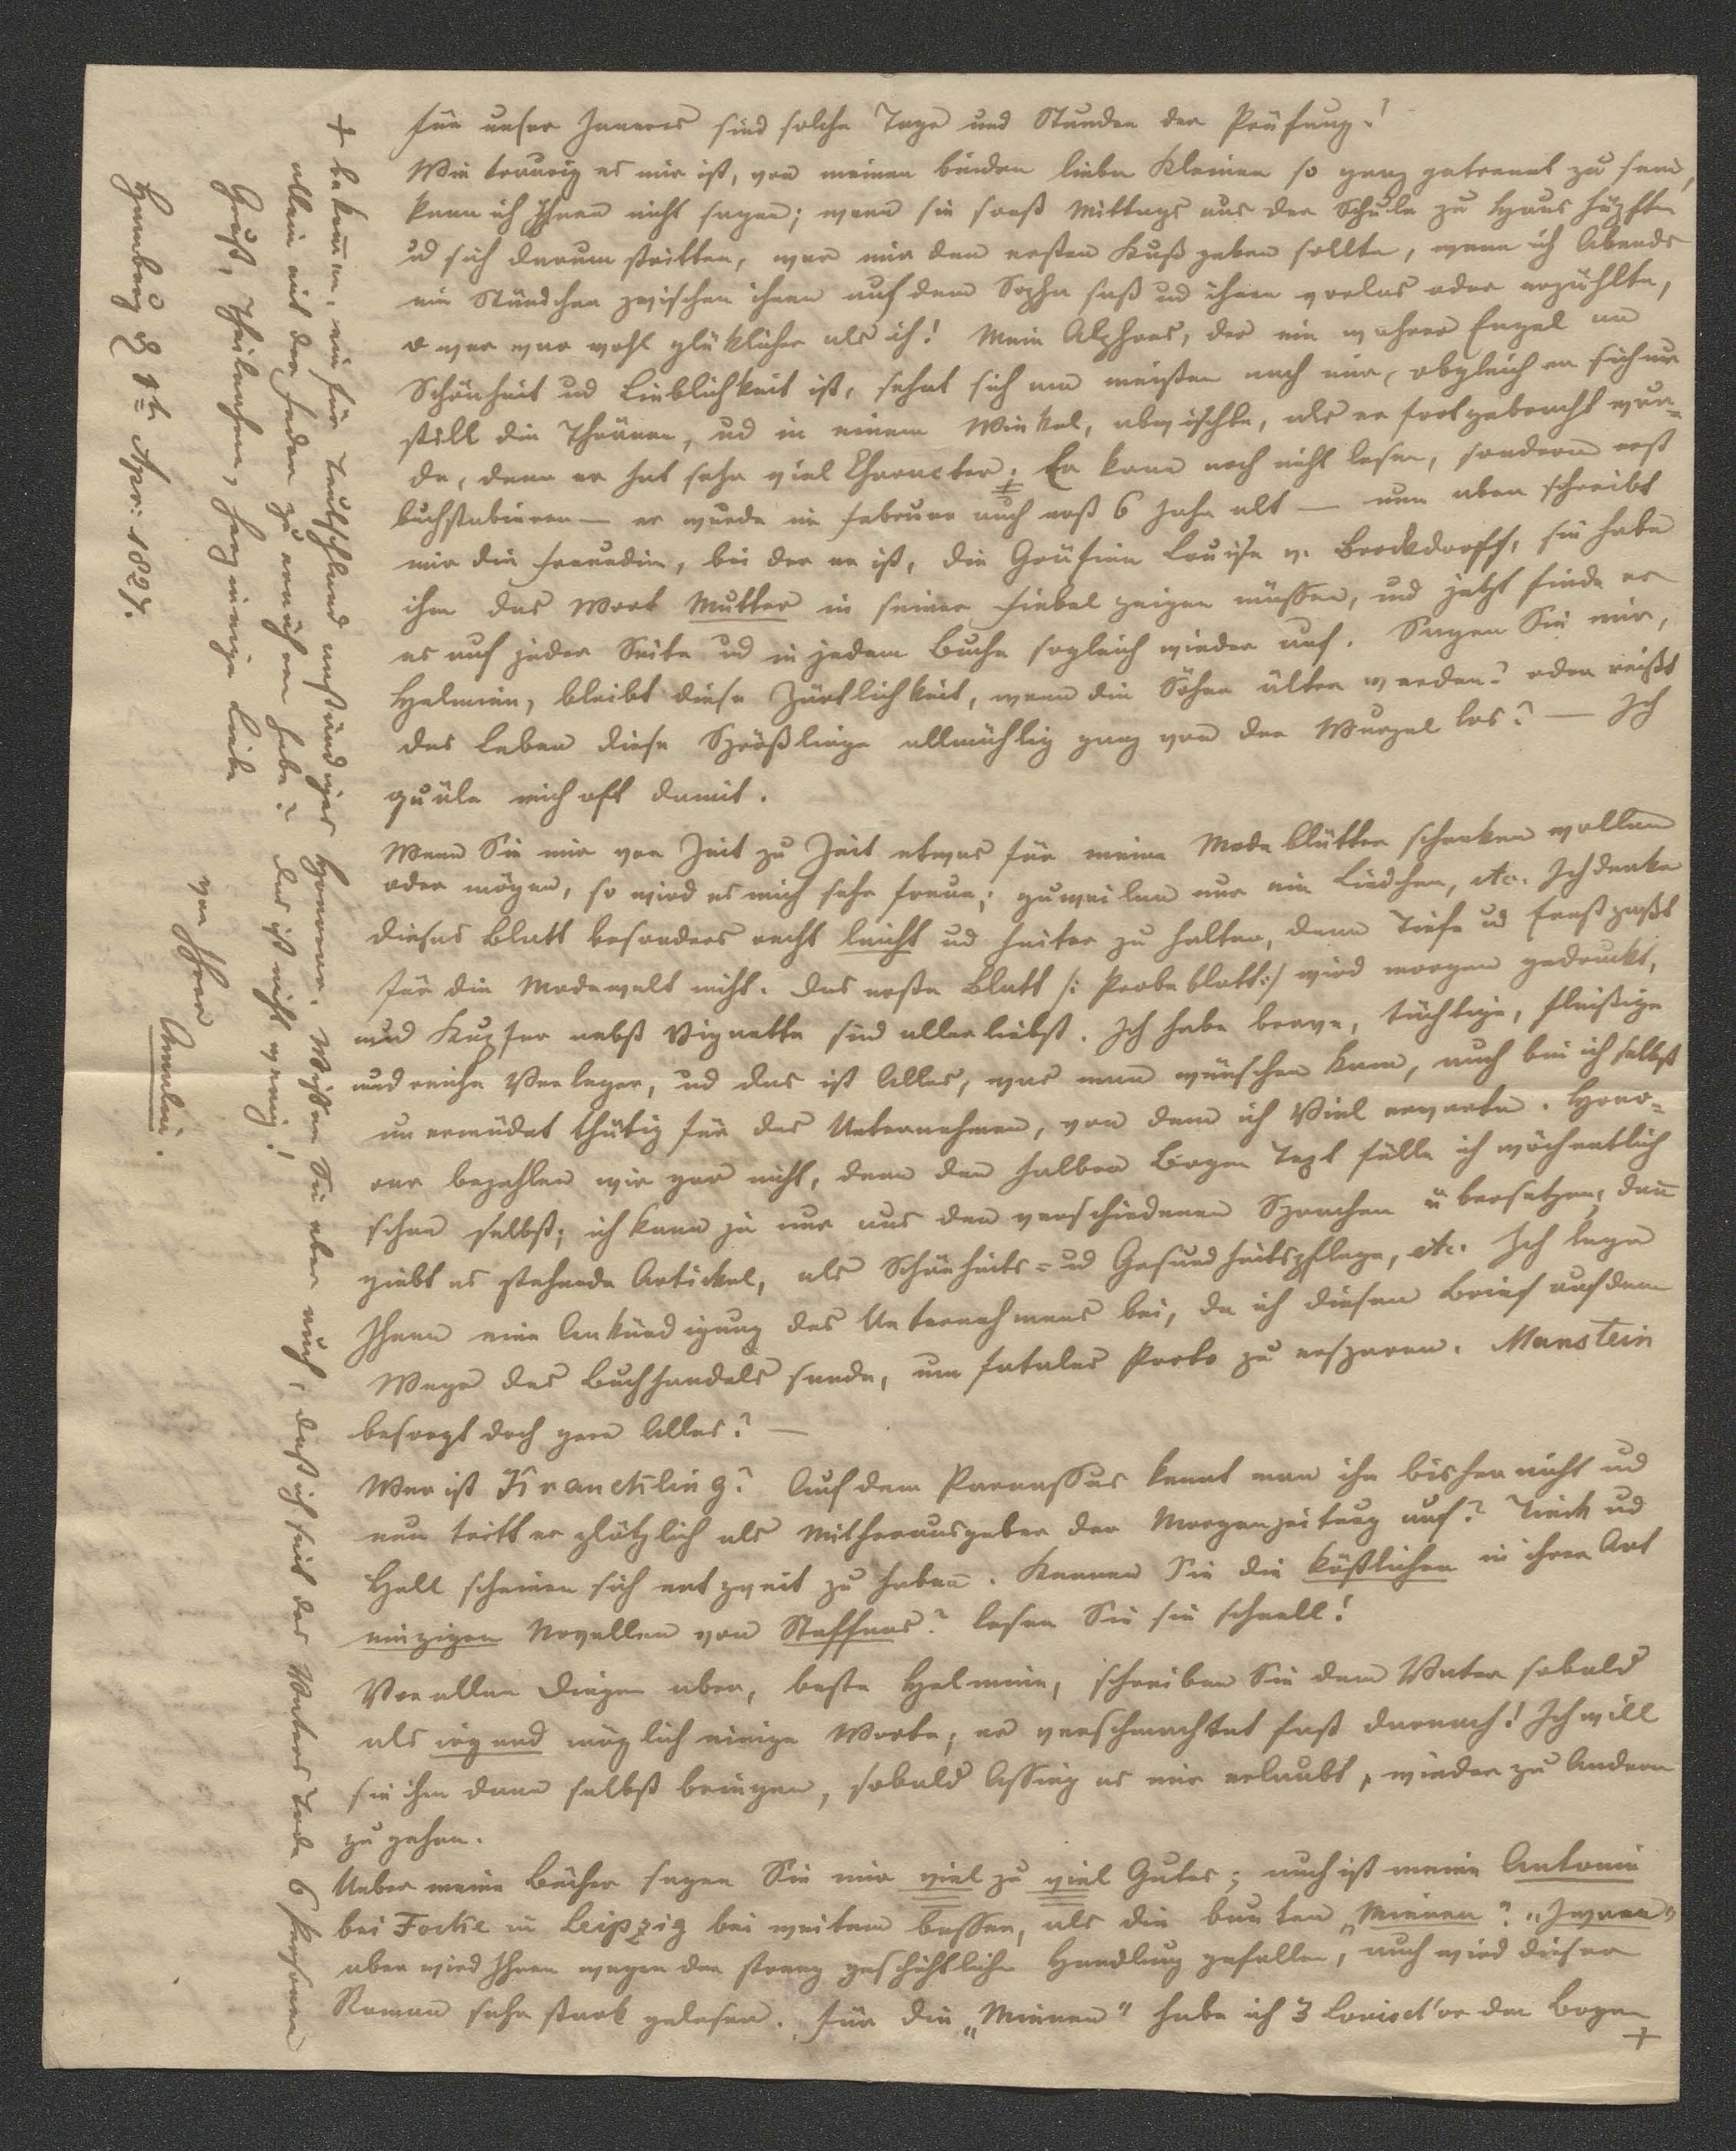 für unser Inneres sind solche Tage und Stunden der Prüfung!
Wie traurig es mir ist, von meinen beiden lieben Kleinen so ganz getrennt zu seyn,
kann ich Ihnen nicht sagen; wenn sie sonst Mittags aus der Schule zu Haus hüpften
ud sich darum stritten, wer mir den ersten Kuß geben sollte, wenn ich Abends
ein Stündchen zwischen ihnen auf dem Sopha saß ud ihnen vorlas oder erzählte,
o wer war wohl glüklicher als ich! Mein Alphons, der ein wahrer Engel an
Schönheit ud Lieblichkeit ist, sehnt sich am meisten nach mir, obgleich er sich nur
still die Thränen, ud in einem Winkel, abwischte, als er fortgebracht wur-
de, denn er hat sehr viel Character; Er kann noch nicht lesen, sondern erst
buchstabieren — er wurde im Februar auch erst 6 Jahr alt — nun aber schreibt
mir die Freundin, bei der er ist, die Gräfinn Louise v. Brockdorff, sie habe
ihm das Wort Mutter in seiner Fiebel zeigen müssen, und jetzt finde er
es auf jeder Seite ud in jedem Buche sogleich wieder auf. Sagen Sie mir,
Helmine, bleibt diese Zärtlichkeit, wenn die Söhne älter werden? oder reißt
das Leben diese Sprößlinge allmählig ganz von der Wurzel los? — Ich
quäle mich oft damit.
Wenn Sie mir von Zeit zu Zeit etwas für meine Modeblätter schenken wollen
oder mögen, so wird es mich sehr freuen; zuweilen nur ein Liedchen, etc. Ich denke
dieses Blatt besonders recht leicht ud heiter zu halten, denn Tiefe ud Ernst paßt
für die Modewelt nicht. Das erste Blatt /: Probeblatt :/ wird morgen gedruckt,
und Kupfer nebst Vignette sind allerliebst. Ich habe brave, tüchtige, fleißige
und reiche Verleger, ud das ist Alles, was man wünschen kann, auch bin ich selbst
unermüdet thätig für das Unternehmen, von dem ich Viel erwarte. Hono-
rar bezahlen wir gar nicht, denn den halben Bogen Text fülle ich wöchentlich
schon selbst; ich kann ja nur aus den verschiedenen Sprachen übersetzen; dann
giebt es stehende Artickel, als Schönheits- ud Gesundheitspflege, etc. Ich lege
Ihnen eine Ankündigung des Unternehmens bei, da ich diesen Brief auf dem
Wege des Buchhandels sende, um fatales Porto zu ersparen. Manstein
besorgt doch gern Alles? —
Wer ist Kraukling? Auf dem Parnassus kennt man ihn bisher nicht ud
nun tritt er plötzlich als Mitherausgeber der Morgenzeitung auf? Tieck ud
Hell scheinen sich entzweit zu haben. Kennen Sie die köstlichen in ihrer Art
einzigen Novellen von Steffens? Lesen Sie sie schnell!
Vor allen Dingen aber, beste Helmine, schreiben Sie dem Vater sobald
als irgend möglich einige Worte; er verschmachtet fast darnach! Ich will
sie ihm dann selbst bringen, sobald Assing es mir erlaubt, wieder zu Andern
zu gehen.
Ueber meine Bücher sagen Sie mir viel zu viel Gutes; auch ist meine Antonie
bei Focke in Leipzig bei weitem besser, als die bunten „Mienen"
aber wird Ihnen wegen der streng geschichtlichen Handlung gefallen, auch wird dieser
Roman sehr stark gelesen. Für die „Mienen" habe ich 3 Louisd'or den Bogen +
+ bekomen, ein für Teutschland anständiges Honorar. Wissen Sie aber auch, daß ich seit des Vaters Tode 6 Personen
allein mit der Feder zu ernähren habe? das ist nicht wenig!
Gruß, Theilnahme, herzinnige Liebe
von Ihrer
Amalie.
Hamburg d 1t Apr: 1827.